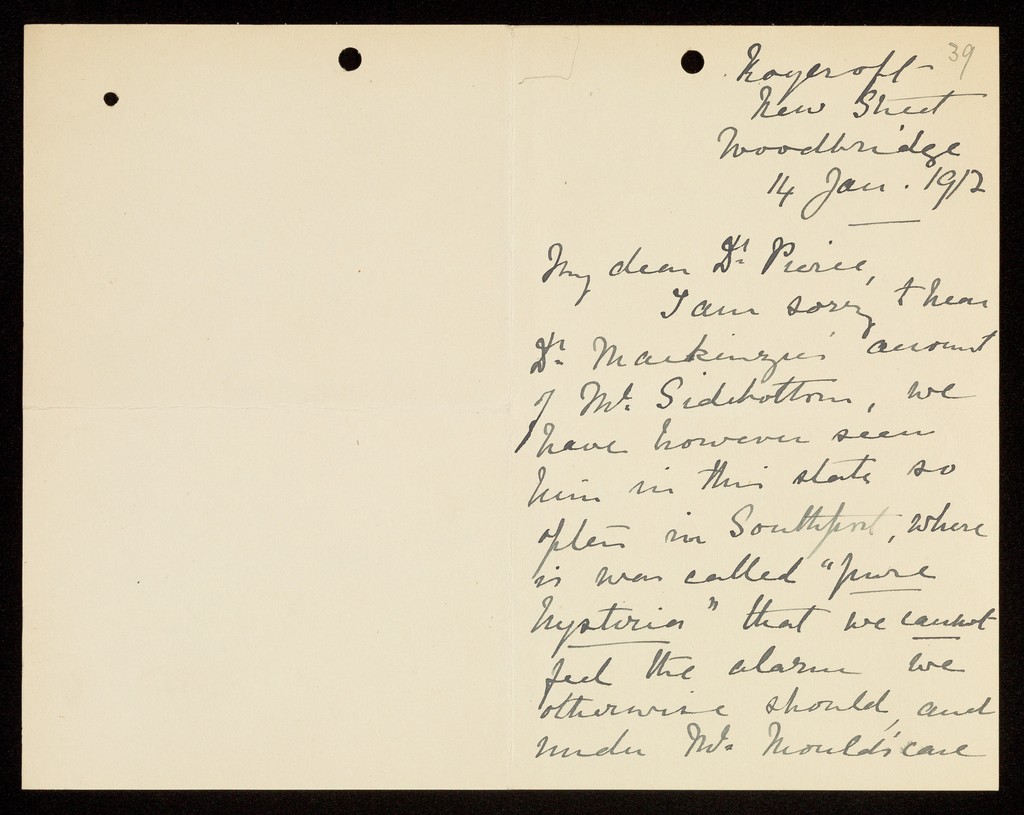 39
Roycroft
New Street
Woodbridge
14 Jan. 1912
My dear Dr. Pierce,
I am sorry to hear
Dr. Mackenzie's account
of Mr. Sidebottom, we
have however seen
him in this state so
often in Southport, where
is was called "pure
hysteria" that we cannot
feel the alarm we
otherwise should, and
under Mr. Mould's care